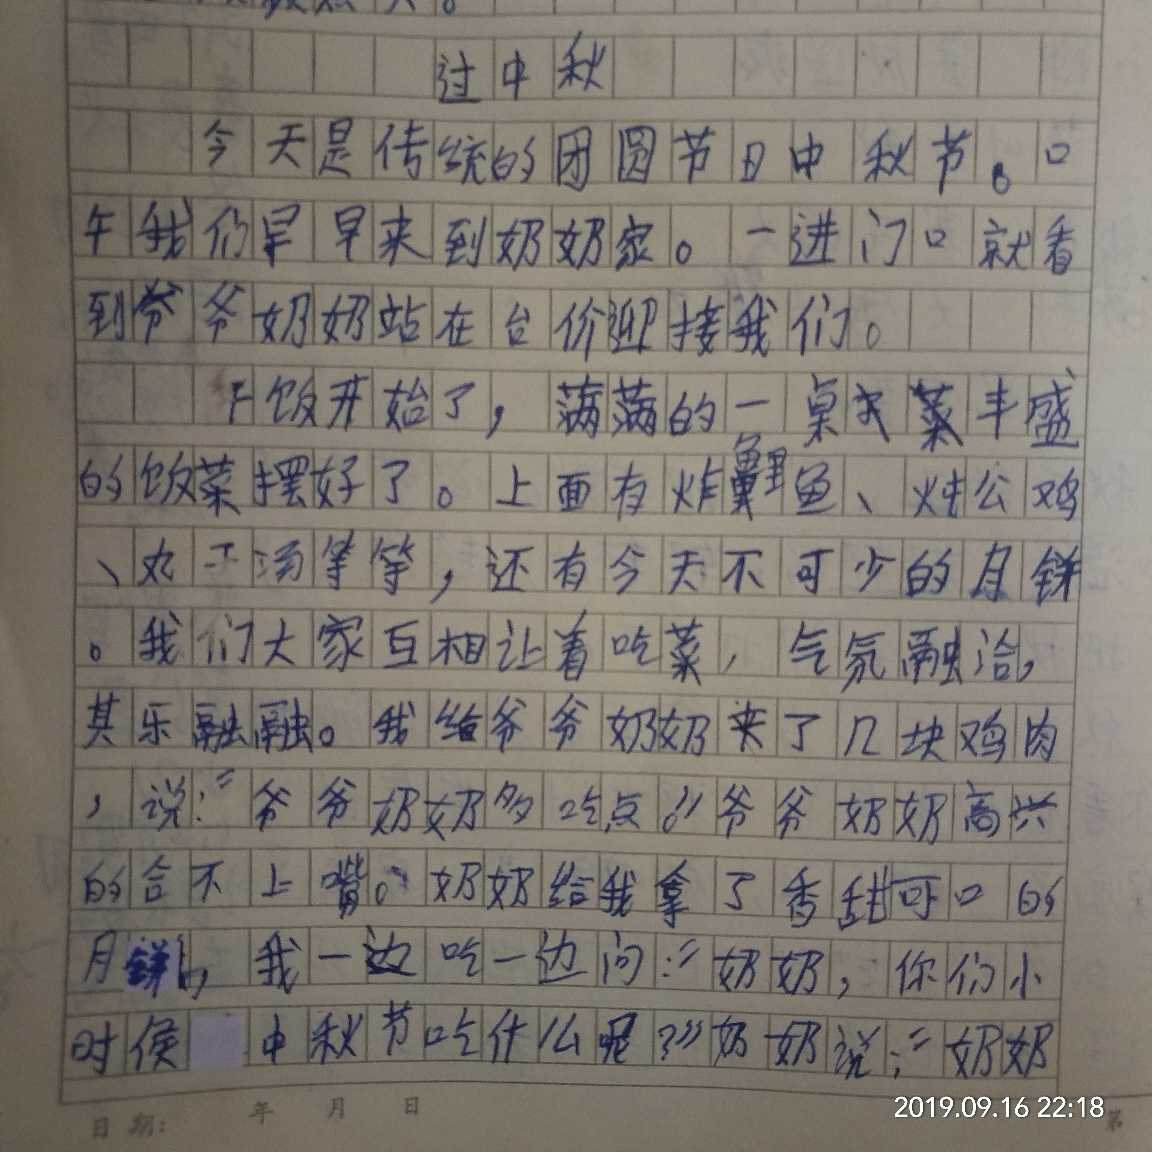 过中秋
今天是传统的团圆节日中秋节。口
午我们早早来到奶奶家。一进门口就看
到爷爷奶奶站在台价迎接我们。
饭开始了，满满的一桌 菜丰盛
的饭菜摆好了。上面有炸鲤鱼、炖公鸡
、丸子汤等等，还有今天不可少的月饼
。我们大家互相让着吃菜，气氛融洽，
其乐融融。我给爷爷奶奶夹了几块鸡肉
，说：“爷爷奶奶多吃点。”爷爷奶奶高兴
的合不上嘴。奶奶给我拿了香甜可口的
月饼，我一边吃一边问：“奶奶，你们小
时侯 中秋节吃什么呢？”奶奶说：“奶奶
日期： 年 月 日
2019.09.16 22:18
第